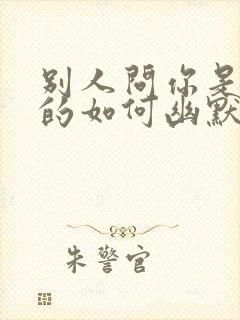 别人问你是
的如何幽默
朱警官